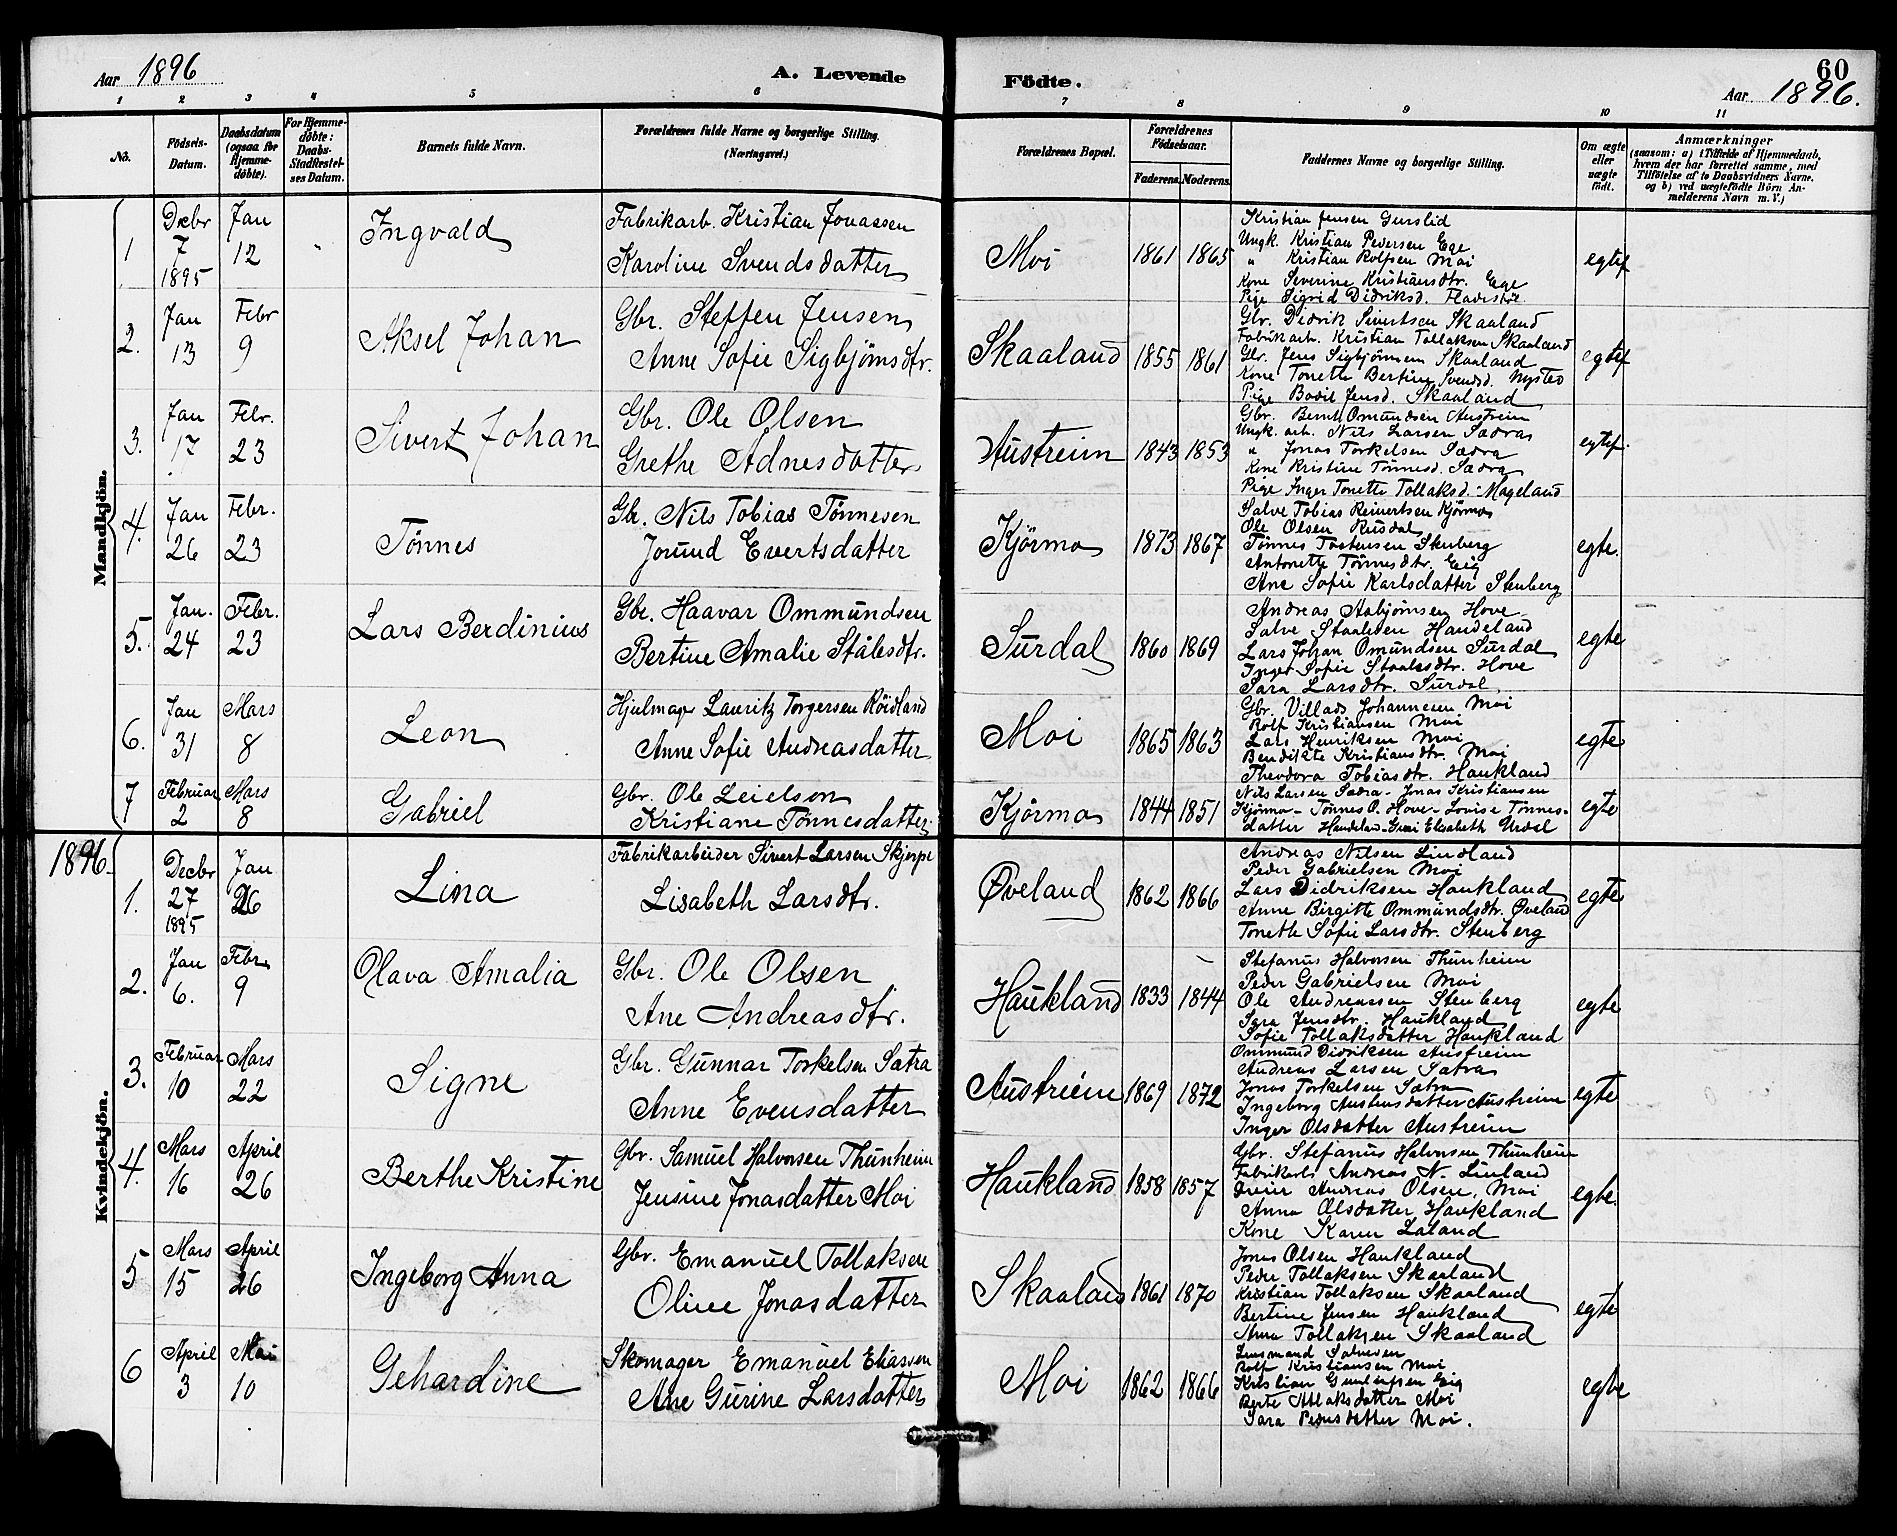 Aar 1896
A. Levende
Födte.
60
Aar 1896.
1 2 3 4 5 6 7 8 9 10 11
No.
Födsels-Datum.
Daabsdatum (ogsaa for Hjemme-döbte).
For Hjemme-döbte: Daabs-Stadfæstel-ses Datum.
Barnets fulde Navn.
Forældrenes fulde Navne og borgerlige Stilling.
(Næringsvei.)
Forældrenes Bopæl.
Forældrenes Födselsaar.
Faderens. Moderens.
Faddernes Navne og borgerlige Stilling.
Om ægte eller uægte født.
Anmærkninger
(saasom: a) i Tilfælde af Hjemmedaab,
hvem der har forrettet samme, med
Tilföielse af to Daabsvidners Navne.
og b) ved uægtefödte Börn An-
melderens Navn m. V.)
Mandkjön.
1 Decbr 7 1895 Jan 12 Ingvald
Fabrikarb. Kristian Jonassen
Karoline Svendsdatter
Moi 1861 1865
Kristian Jensen Gurslid
Ungk. Kristian Pedersen Ege
" Kristian Rolfsen Moi
Kone Severine Kristiansdtr. Ege
Pige Sigrid Didriksd.
egtef
2. Jan 13 Febr 9 Aksel Johan
Gbr. Steffen Jensen
Anne Sofie Sigbjörnsdtr.
Skaaland 1855 1861
Gbr. Didrik Sivertsen Skaaland
Fabrikarb. Kristian Tollaksen Skaaland
Gbr. Jens Sigbjörnsen Skaaland
Kone Tonette Bertine Svendsd. Nysted
Pige Bodil Jensd. Skaaland
egtef
3. Jan 17 Febr. 23 Sivert Johan
Gbr. Ole Olsen
Grethe Adnesdatter
Austreim 1843 1853
Gbr. Bernt Omundsen Austreim
Ungk. arb. Nils Larsen Sædra
" Jonas Torkelsen Sædra
Kone Kristine Tönnesd. Sædra
Pige Inger Tonette Tollaksd. Mageland
egtef.
4. Jan 26 Febr. 23 Tönnes
Gbr. Nils Tobias Tönnesen
Jorund Evertsdatter
Kjörmo 1873 1867
Salve Tobias Reinertsen Kjörmo
Ole Olsen Rusdal
Tönnes Tostensen Stenberg
Antonette Tönnesdtr. Eig
Ane Sofie Karlsdatter Stenberg
egte.
5. Jan. 24 Febr. 23 Lars Berdinius
Gbr. Haavar Ommundsen
Bertine Amalie Stålesdtr.
Surdal 1860 1869
Andreas Asbjörnsen Hove
Salve Staalesen Handeland
Lars Johan Omundsen Surdal
Inger Sofie Staalesdtr. Hove
Sara Larsdtr. Surdal
egte
6. Jan 31 Mars 8 Leon
Hjulmager Lauritz Torgersen Röidland
Anne Sofie Andreasdatter
Moi 1865 1863
Gbr. Villads Johannesen Moi
Rolf Kristiansen Moi
Lars Henriksen Moi
Bendikte Kristiansdtr. Moi
Theodora Tobiasdtr. Haukland
egte
7 Februar 2 Mars 8 Gabriel
Gbr. Ole Leielsen
Kristiane Tönnesdatter
Kjörmo 1844 1851
Nils Larsen Sædra - Jonas Kristiansen
Kjörmo - Tönnes O. Hove - Lovise Tönnes-
datter Handeland - Elisabeth Urdal
egte
1896.
Kvindekjön.
1. Decbr 27 1895 Jan 26 Lina
Fabrikarbeider Sivert Larsen Skjerpe
Lisabeth Larsdtr.
Øveland 1862 1866
Andreas Nilsen Lindland
Peder Gabrielsen Moi
Lars Didriksen Haukland
Anne Birgitte Ommundsdtr. Øveland
Tonette Sofie Larsdtr. Stenberg
egte
2. Jan 6. Febr 9 Olava Amalia
Gbr. Ole Olsen
Ane Andreasdtr.
Haukland 1833 1844
Stefanus Halvorsen Thunheim
Peder Gabrielsen Moi
Ole Andreassen Stenberg
Sara Jensdtr. Haukland
Sofie Tollaksdatter Haukland
egte
3. Februar 10 Mars 22 Signe
Gbr. Gunnar Torkelsen Sætra
Anne Evensdatter
Austreim 1869 1872
Ommund Didriksen Austreim
Andreas Larsen Sætra
Jonas Torkelsen Sætra
Ingeborg Austensdatter Austreim
Inger Olsdatter Austreim
egte
4. Mars 16 April 26 Berthe Kristine
Gbr. Samuel Halvorsen Thunheim
Jensine Jonasdatter Moi
Haukland 1858 1857
Gbr. Stefanus Halvorsen Thunheim
Fabrikarb. Andreas N. Linland
Andreas Olsen, Moi
Anna Olsdatter Haukland
Kone Karen Laland
egte.
5 Mars 15 April 26 Ingeborg Anna
Gbr. Emanuel Tollaksen
Oline Jonasdatter
Skaaland 1861 1870
Jonas Olsen Haukland
Peder Tollaksen Skaaland
Kristian Tollaksen Skaaland
Bertine Jensen Haukland
Anna Tollaksen Skaaland
egte
6 April 3 Mai 10 Gehardine
Skomager Emanuel Eliassen
Ane Gurine Larsdatter
Moi 1862 1866
Lensmand Salvesen
Rolf Kristiansen Moi
Kristian Eig
Berte Atlaksdatter Moi
Sara Pedersdatter Moi.
egte